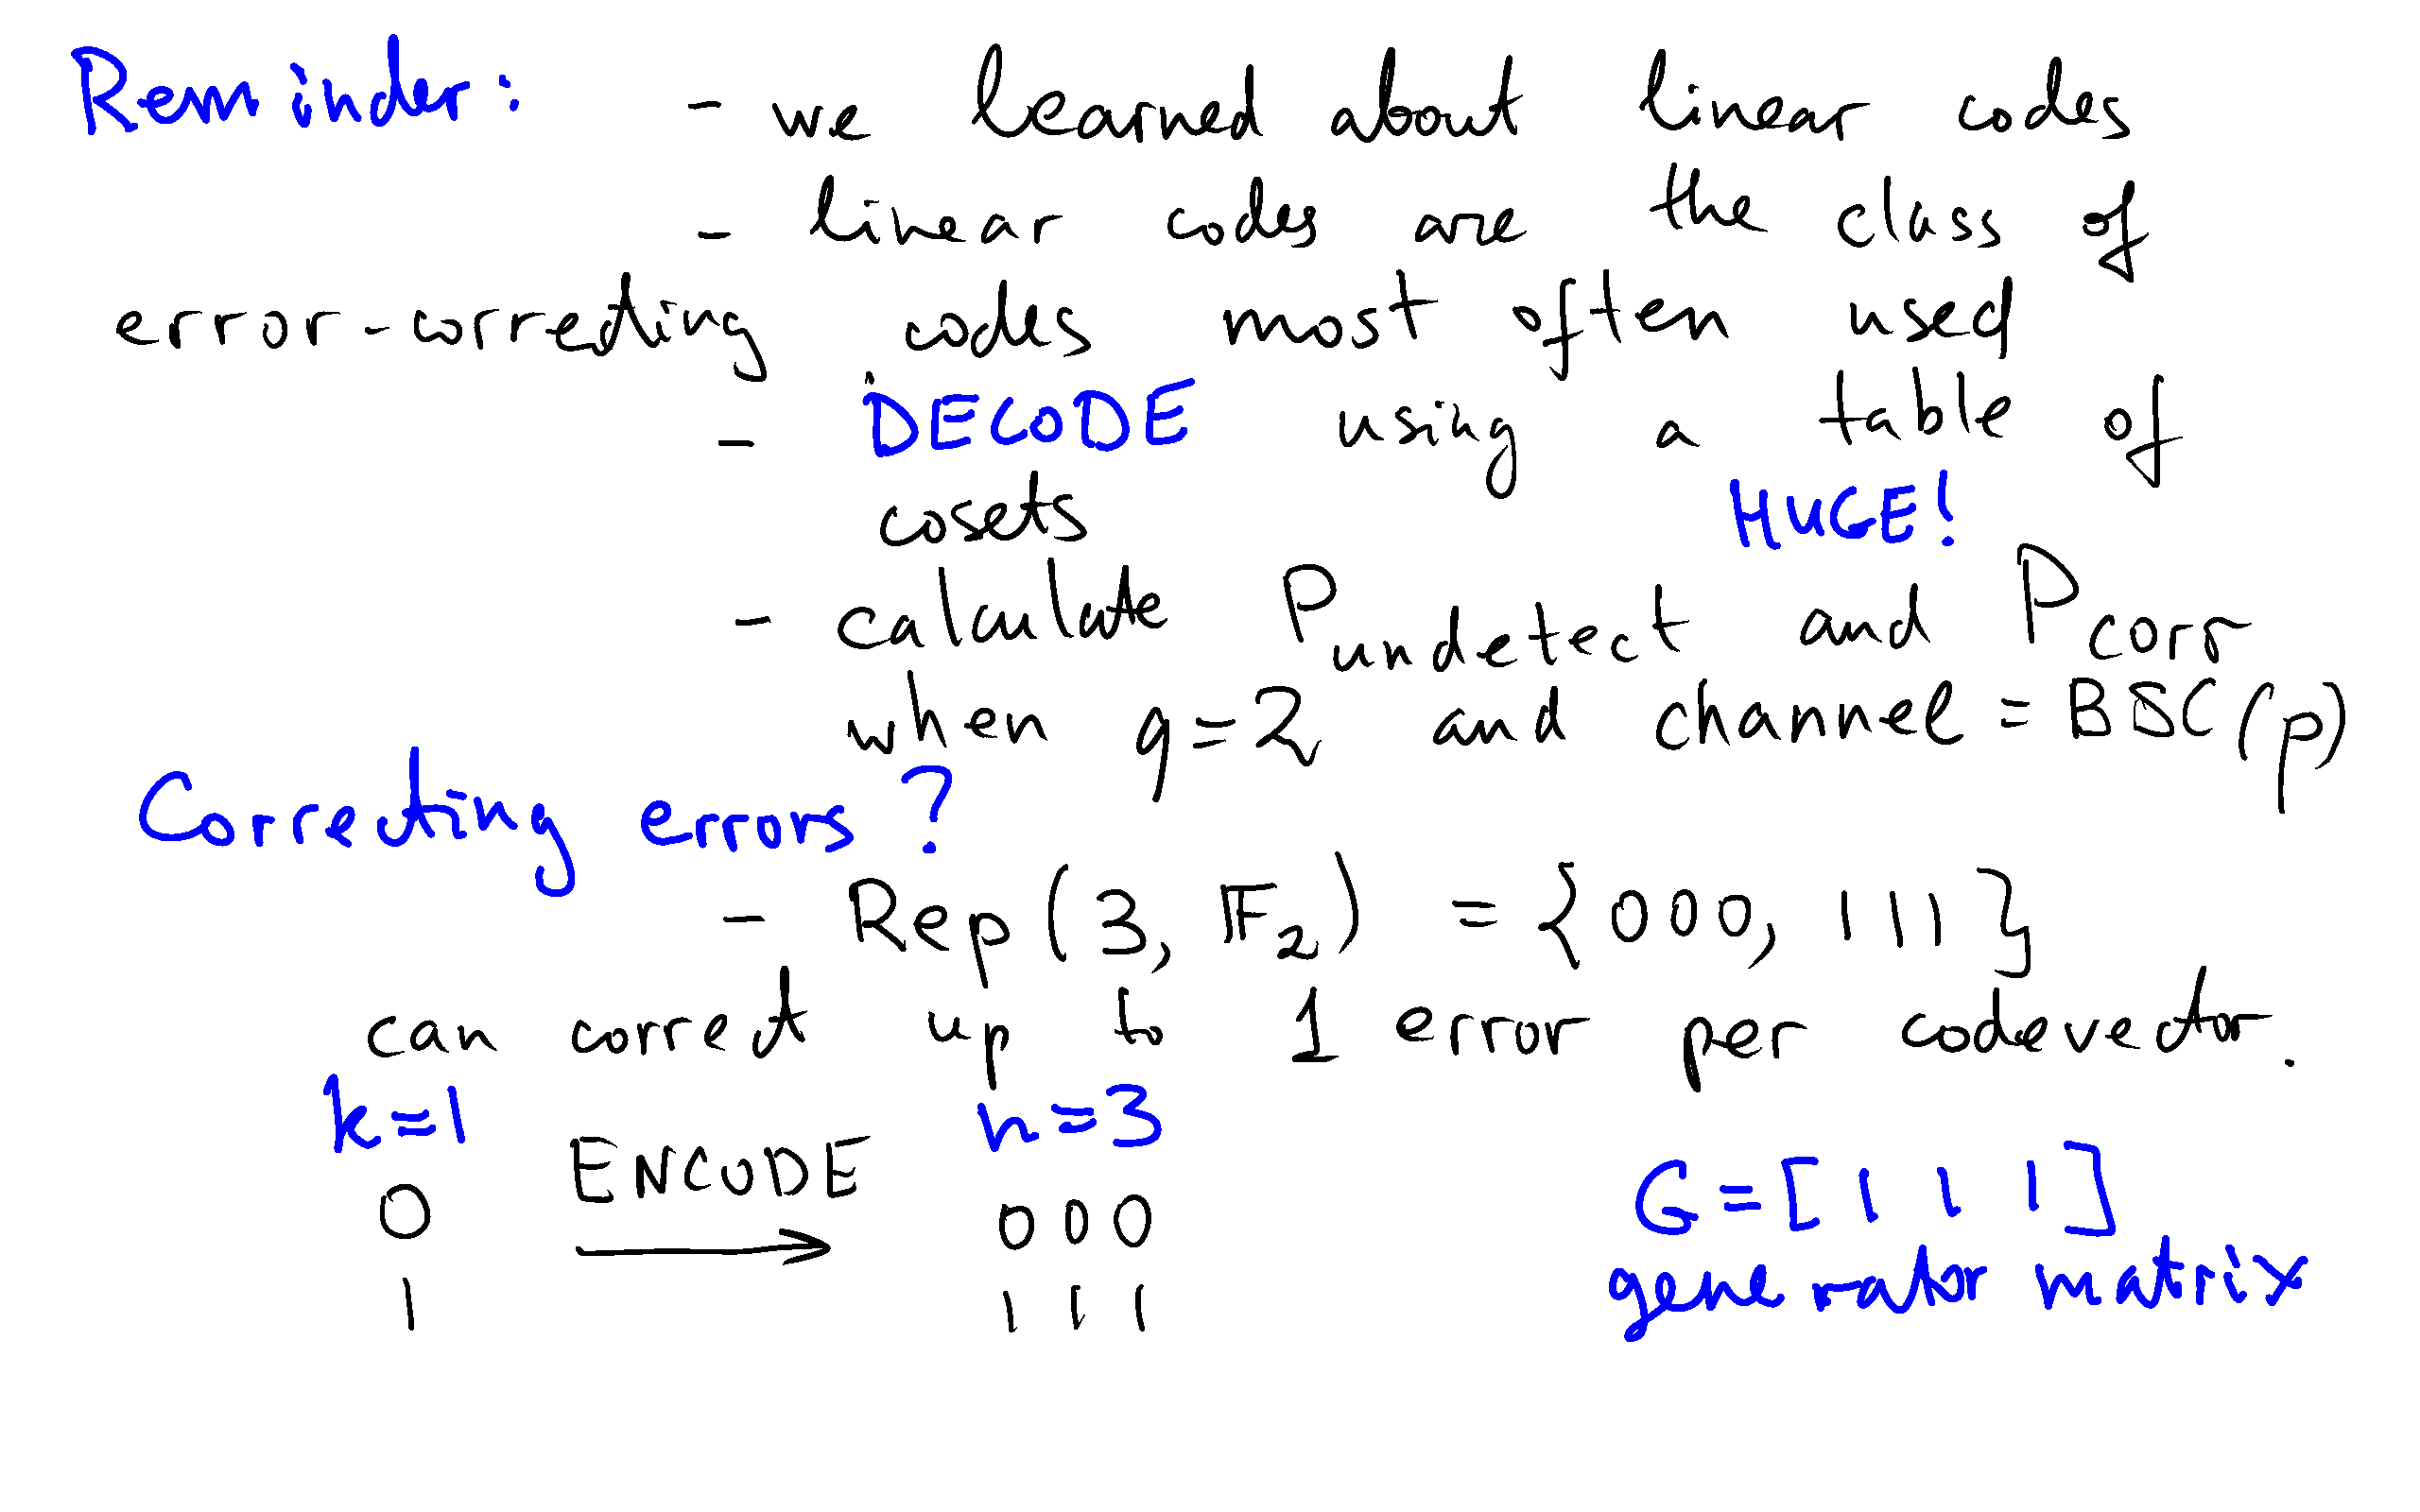 Reminder: - we learned about linear codes
- linear codes are the class of
error-correcting codes most often used
- DECODE using a table of
cosets HUGE!
- calculate P_undetect and P_corr
when q=2 and channel = BSC(p)
Correcting errors?
- Rep(3, 𝔽₂) = {000, 111}
can correct up to 1 error per codevector.
k=1 n=3
ENCODE
0 → 000 G=[1 1 1]
1 111 generator matrix